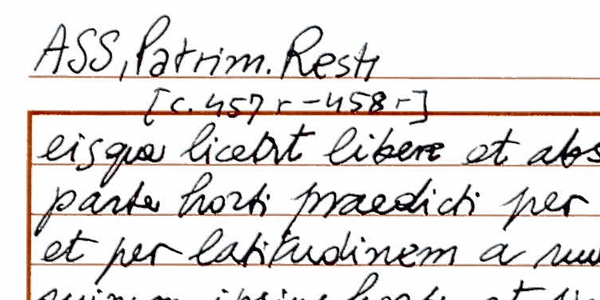 ASS, Patrim. Resti
[c. 457 r - 458 r]
eisque licebit libere et abs
parte horti praedicti per
et per latitudinem a mu